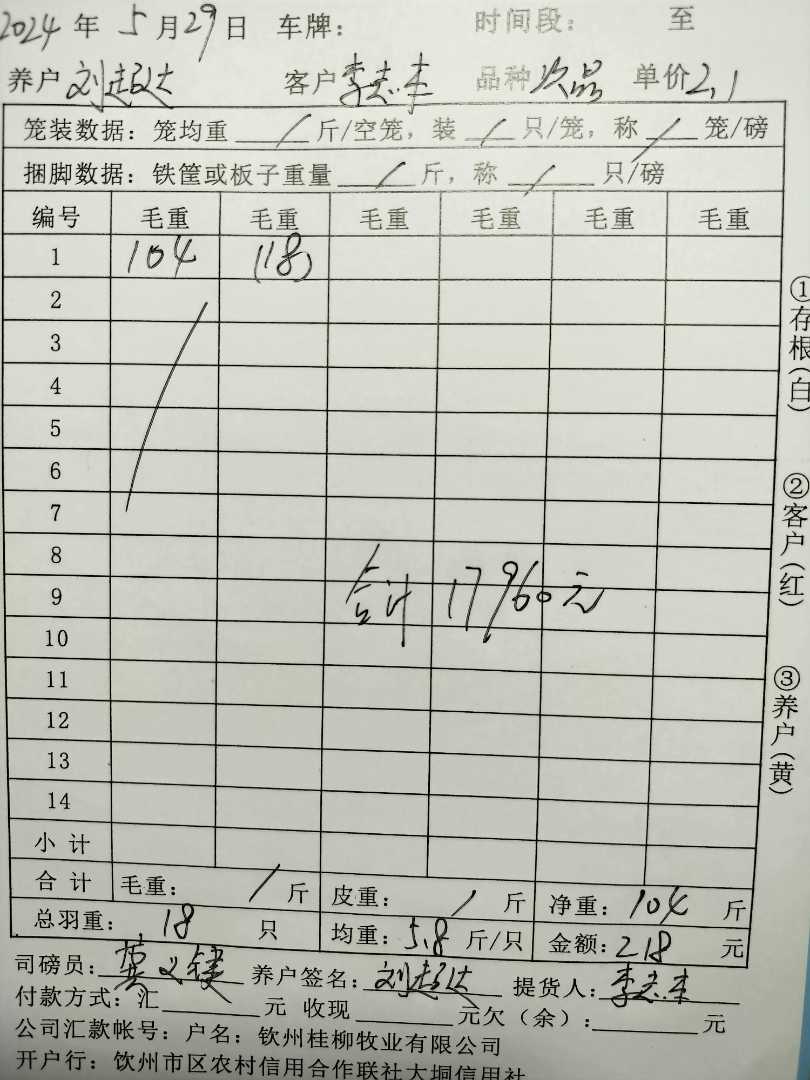 2024 年 5 月 29 日 车牌： 时间段： 至
养户 刘起达 客户 李志丰 品种 次品 单价 2.1
笼装数据：笼均重 / 斤/空笼，装 / 只/笼，称 / 笼/磅
捆脚数据：铁筐或板子重量 / 斤，称 / 只/磅
编号 毛重 毛重 毛重 毛重 毛重 毛重
1 104 (18)
2
3
4
5
6
7
8
9 合计 17960元
10
11
12
13
14
小 计
合 计 毛重： / 斤 皮重： / 斤 净重：104 斤
总羽重：18 只 均重：5.8 斤/只 金额：218 元
司磅员： 养户签名：刘起达 提货人：李志丰
付款方式：汇 元 收现 元欠（余）： 元
公司汇款帐号：户名：钦州桂柳牧业有限公司
开户行：钦州市区农村信用合作联社大垌信用社
①存根（白）
②客户（红）
③养户（黄）